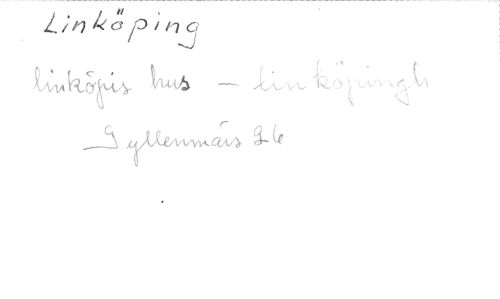 Linköping
linköpis hus – linköpingh
Gyllenmärs 26